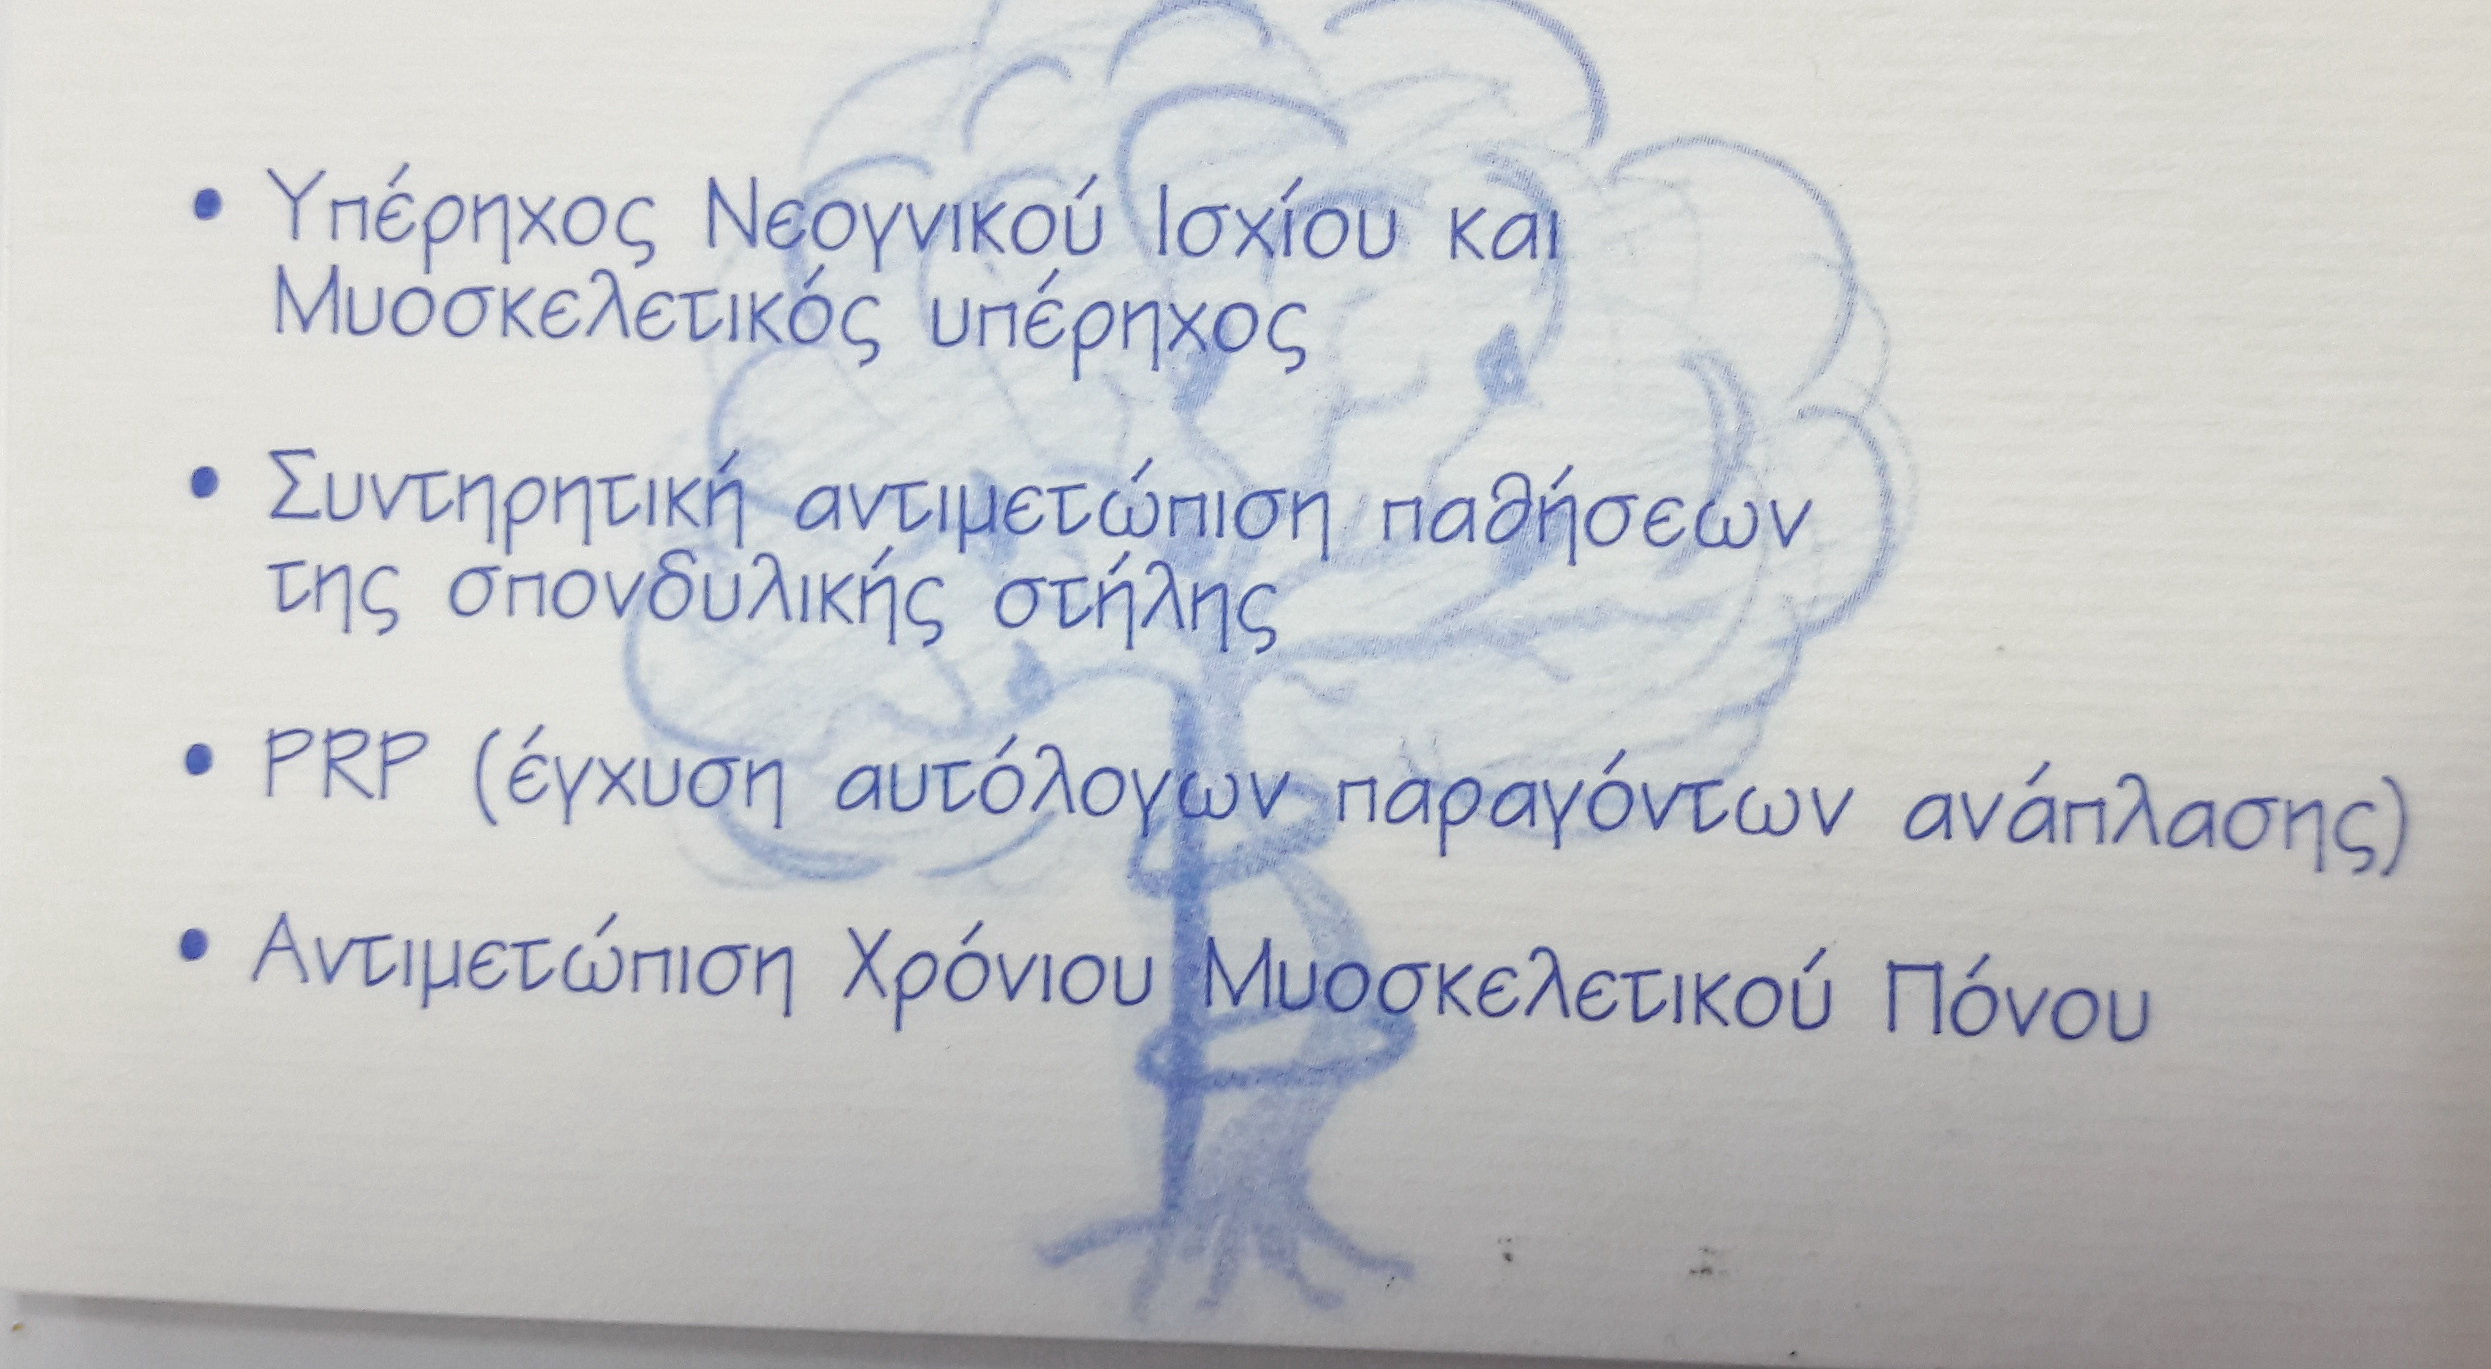 • Υπέρηχος Νεογνικού Ισχίου και
Μυοσκελετικός υπέρηχος
• Συντηρητική αντιμετώπιση παθήσεων
της σπονδυλικής στήλης
• PRP (έγχυση αυτόλογων παραγόντων ανάπλασης)
• Αντιμετώπιση Χρόνιου Μυοσκελετικού Πόνου